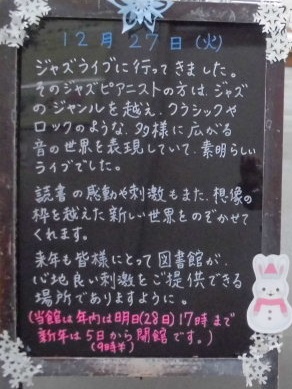 12月27日(火)
ジャズライブに行ってきました。
そのジャズピアニストの方は、ジャズ
のジャンルを越え、クラシックや
ロックのような、多様に広がる
音の世界を表現していて、素晴らしい
ライブでした。
読書の感動や刺激もまた、想像の
枠を越えた新しい世界をのぞかせて
くれます。
来年も皆様にとって図書館が、
心地良い刺激をご提供できる
場所でありますように。
(当館は年内は明日(28日)17時まで
新年は5日から開館です。)
(9時半)